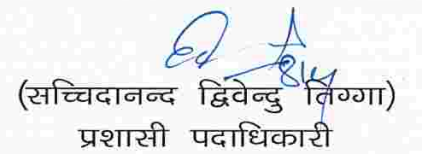 (सच्चिदानन्द द्विवेन्दु तिग्गा)
प्रशासी पदाधिकारी